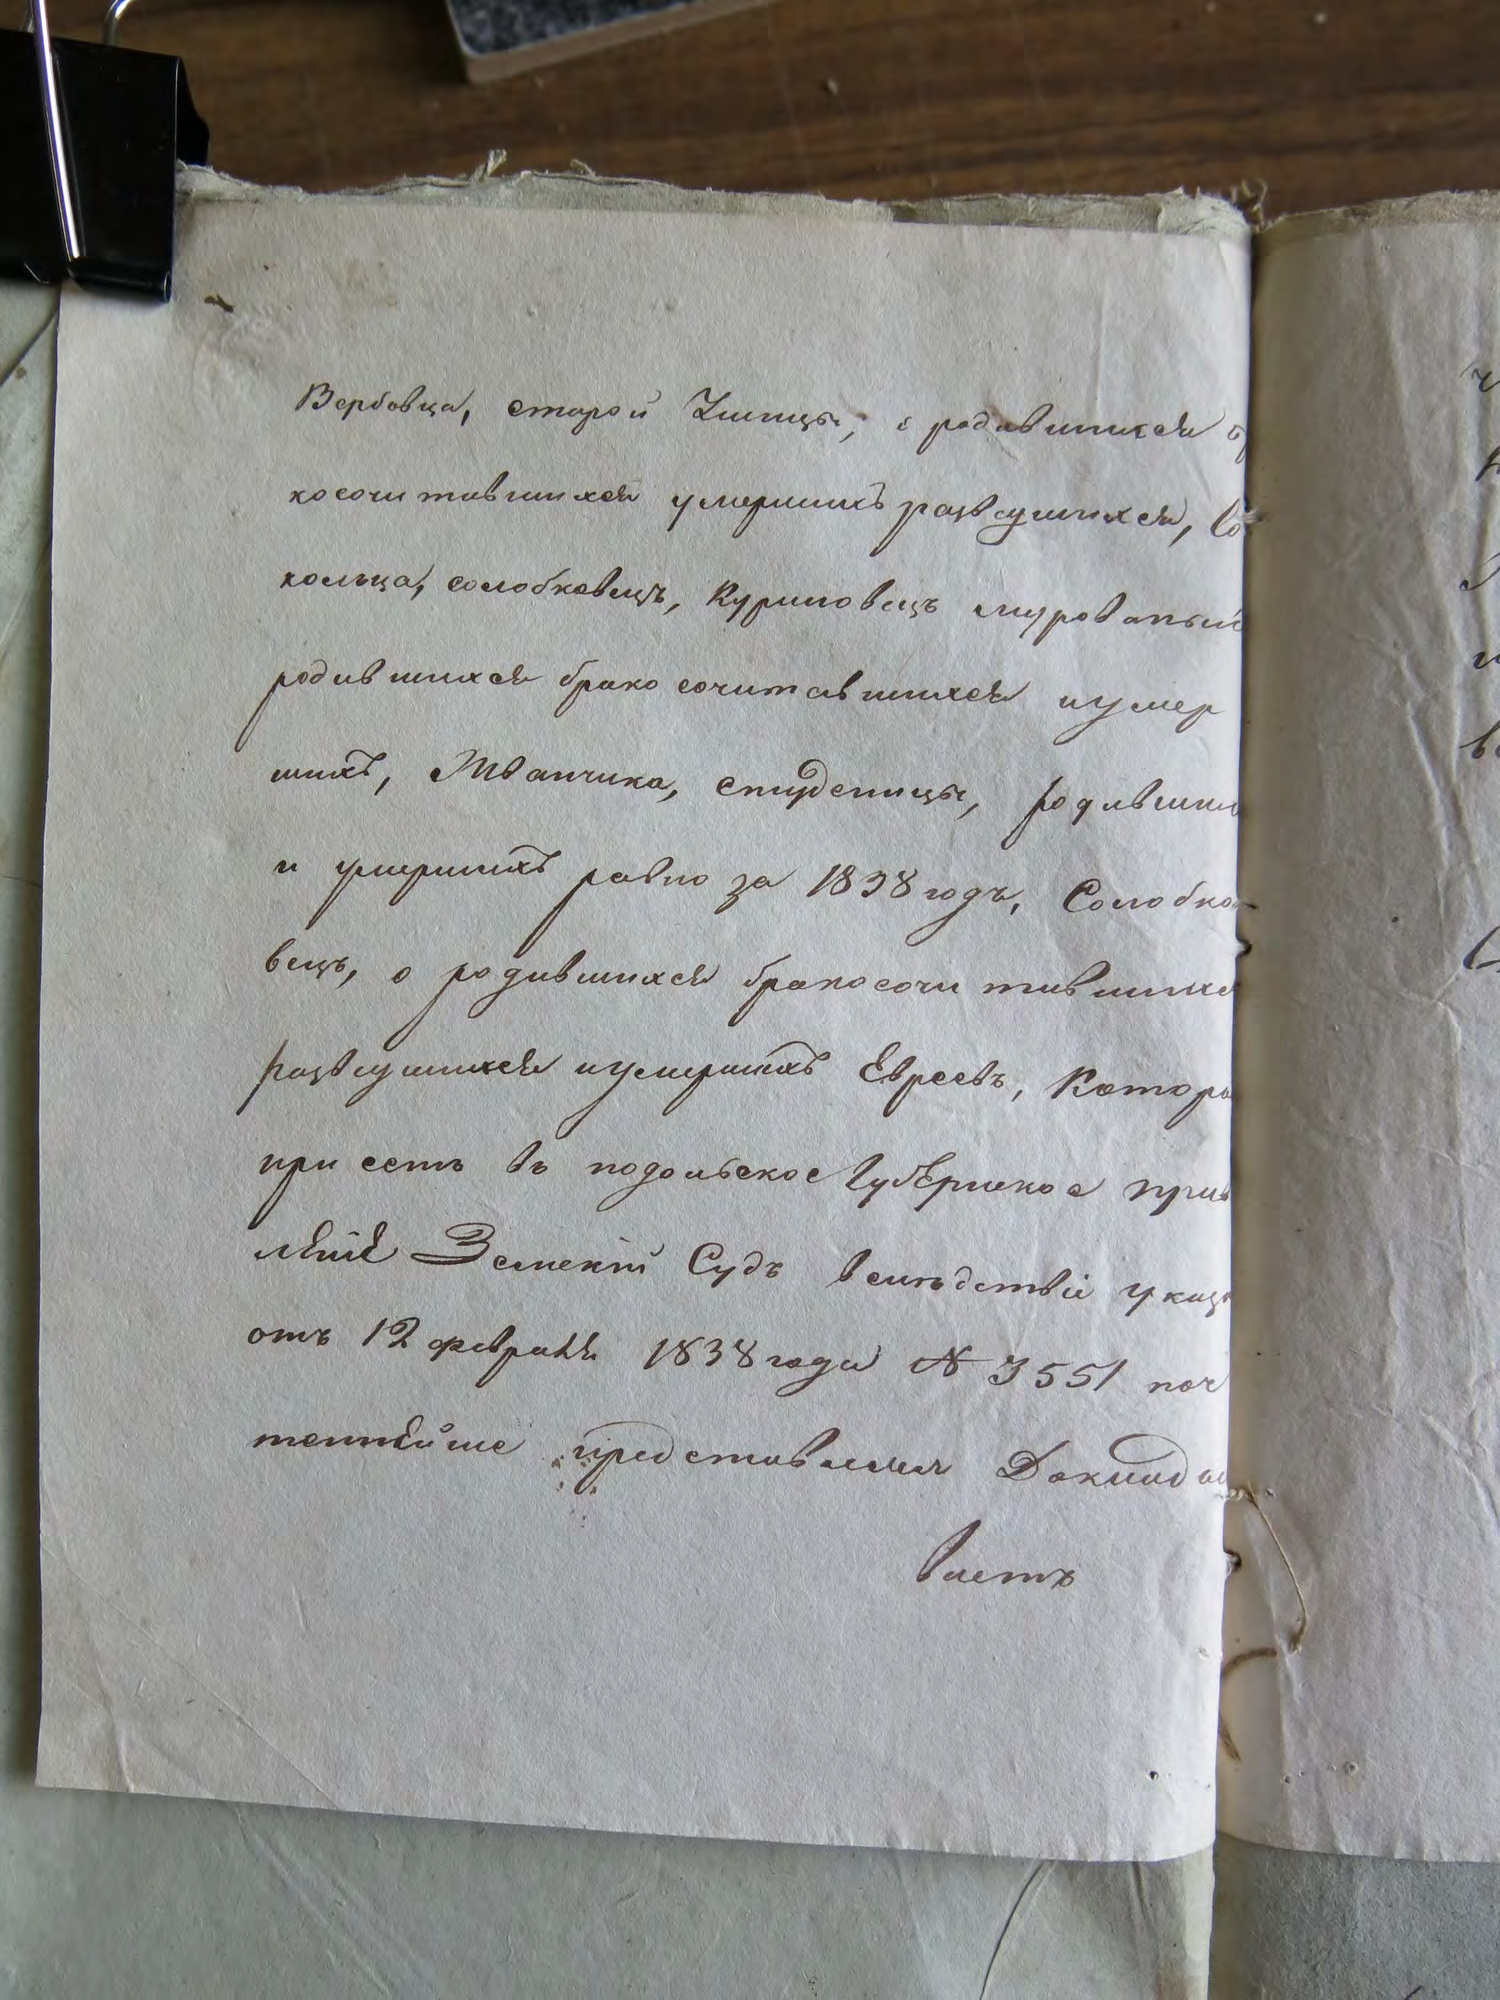 Вербовца, старой Ушицы, о родившихся б
косочитавшихся умершихъ разведшихся, Со
кольца, солобковецъ, Куриловецъ мурованый
родившихся бракосочитавшихся иумер
шихъ, Жванчика, студеницы, родивших
и умершихъ равно за 1838 годъ, Солобко
вецъ, о родившихся бракосочитавшихся
разведшихся иумершихъ Евреевъ, Которы
при семъ въ подольское Губернское прав
лѣніѣ Земскій Судъ вслѣдствіе указа
отъ 12 февраля 1838 года № 3551 поч
теннѣйше представляя Доклады
ваетъ